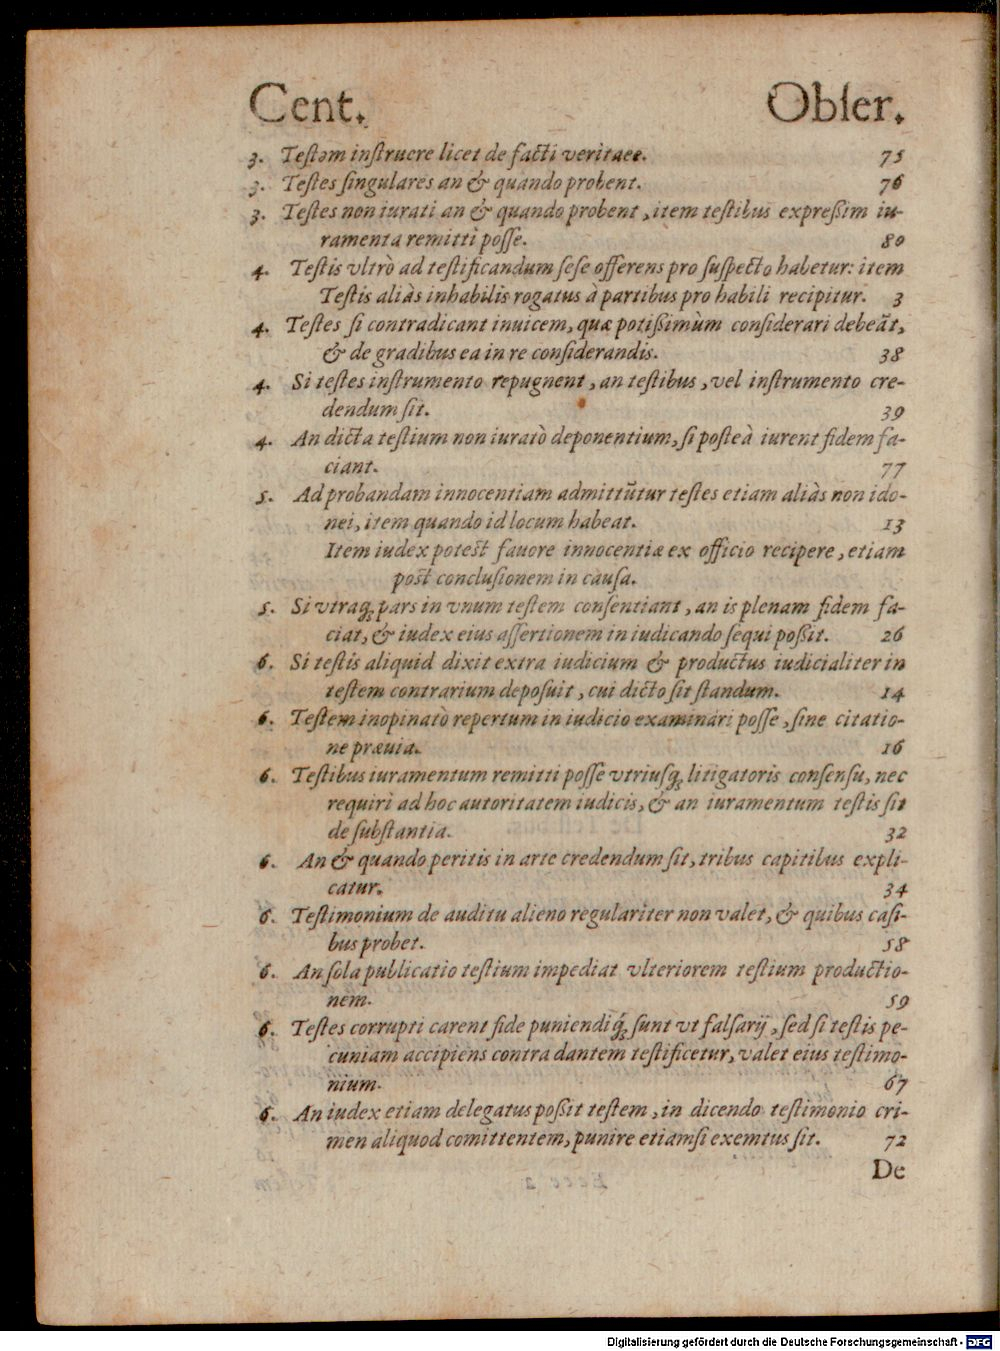 Cent. Obser.
3. Testem instruere licet de facti veritaee. 75
3. Testes singulares an & quando probent. 76
3. Testes non iurati an & quando probent, item testibus expreßim iu-
ramenta remitti posse. 80
4. Testis vltrò ad testificandum sese offerens pro suspecto habetur: item
Testis aliàs inhabilis rogatus à partibus pro habili recipitur. 3
4. Testes si contradicant inuicem, quæ potißimùm considerari debeāt,
& de gradibus ea in re considerandis. 38
4. Si testes instrumento repugnent, an testibus, vel instrumento cre-
dendum sit. 39
4. An dicta testium non iuratò deponentium, si posteà iurent fidem fa-
ciant. 77
5. Ad probandam innocentiam admittūtur testes etiam aliàs non ido-
nei, item quando id locum habeat. 13
Item iudex potest fauore innocentiæ ex officio recipere, etiam
post conclusionem in causa.
5. Si vtraq; pars in vnum testem consentiant, an is plenam fidem fa-
ciat, & iudex eius assertionem in iudicando sequi poßit. 26
6. Si testis aliquid dixit extra iudicium & productus iudicialiter in
testem contrarium deposuit, cui dicto sit standum. 14
6. Testem inopinatò repertum in iudicio examinari posse, sine citatio-
ne præuia. 16
6. Testibus iuramentum remitti posse vtriusq; litigatoris consensu, nec
requiri ad hoc autoritatem iudicis, & an iuramentum testis sit
de substantia. 32
6. An & quando peritis in arte credendum sit, tribus capitibus expli-
catur. 34
6. Testimonium de auditu alieno regulariter non valet, & quibus casi-
bus probet. 58
6. An sola publicatio testium impediat vlteriorem testium productio-
nem. 59
6. Testes corrupti carent fide puniendiq́; sunt vt falsarij, sed si testis pe-
cuniam accipiens contra dantem testificetur, valet eius testimo-
nium. 67
6. An iudex etiam delegatus poßit testem, in dicendo testimonio cri-
men aliquod comittentem, punire etiamsi exemtus sit. 72
De
Digitalisierung gefördert durch die Deutsche Forschungsgemeinschaft - DFG